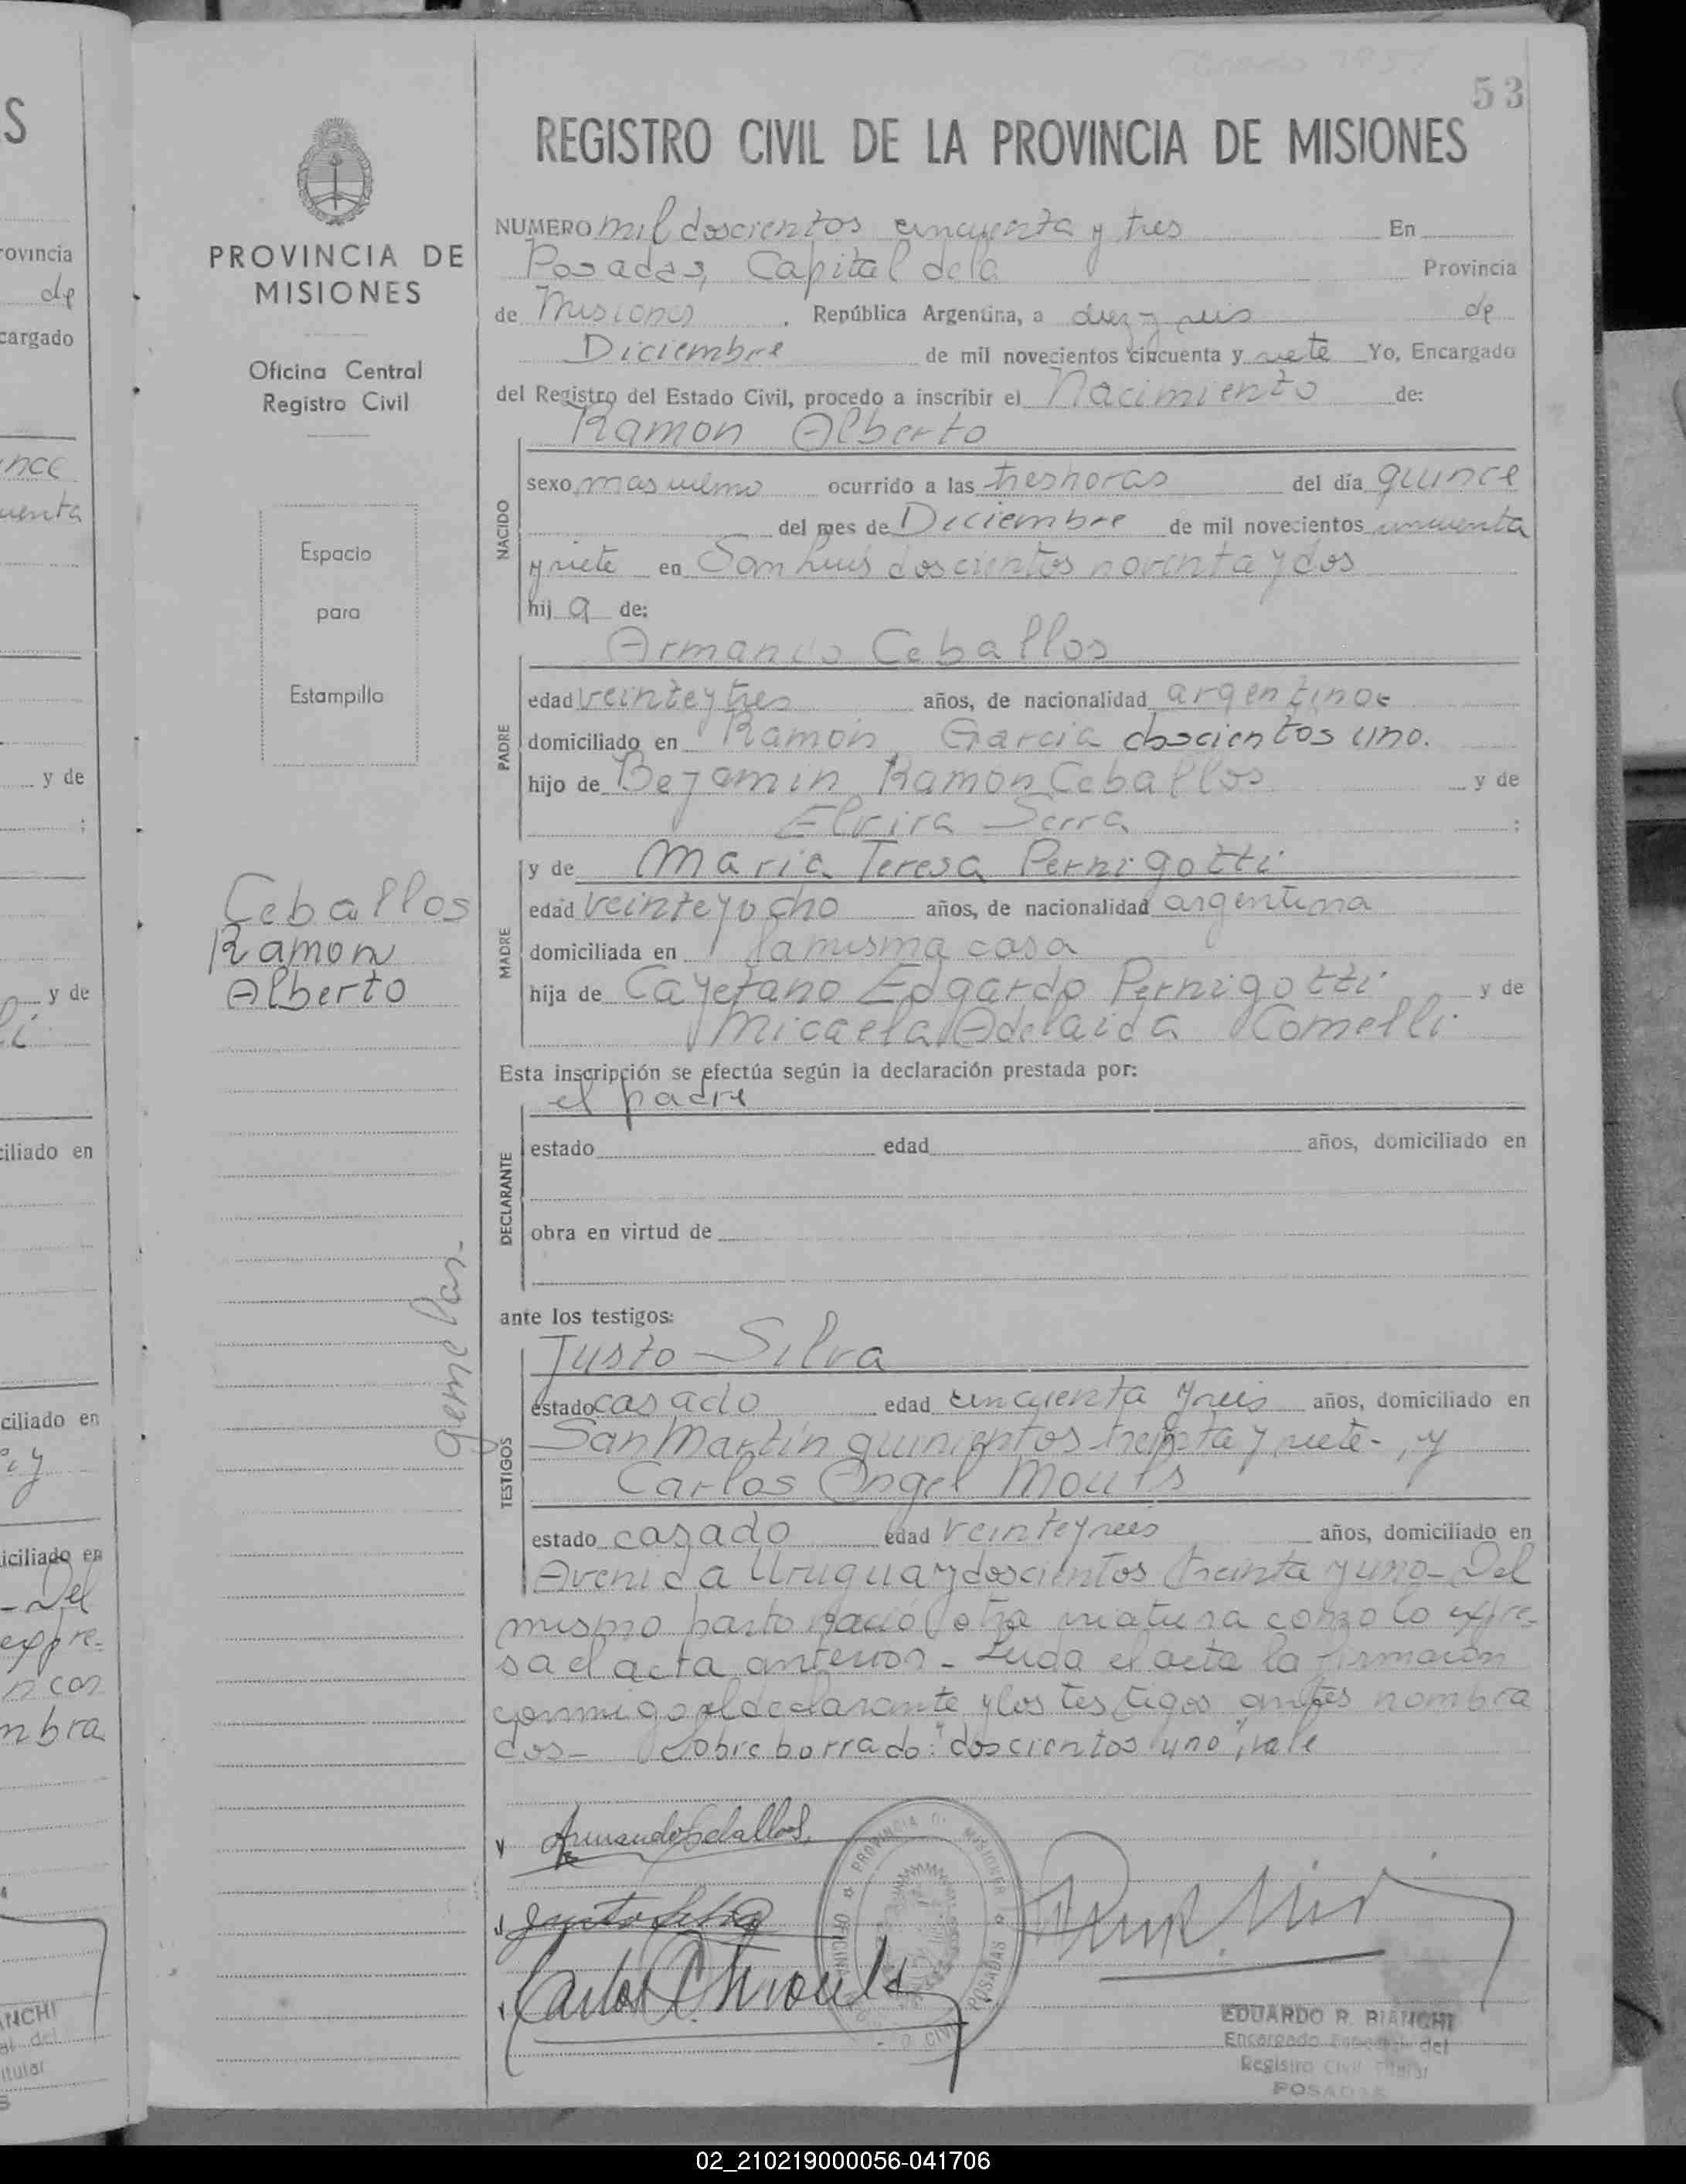 53
REGISTRO CIVIL DE LA PROVINCIA DE MISIONES
PROVINCIA DE
MISIONES
Oficina Central
Registro Civil
Espacio
para
Estampilla
Ceballos
Ramon
Alberto
gemelos.
NUMERO mil doscientos cincuenta y tres En
Posadas, Capital de la Provincia
de Misiones, República Argentina, a diez y seis de
Diciembre de mil novecientos cincuenta y siete Yo, Encargado
del Registro del Estado Civil, procedo a inscribir el Nacimiento de:
Ramon Alberto
NACIDO
sexo masculino ocurrido a las tres horas del día quince
del mes de Diciembre de mil novecientos cincuenta
y siete en San Luis doscientos noventa y dos
hij o de:
Armando Ceballos
PADRE
edad veinte y tres años, de nacionalidad argentino
domiciliado en Ramón Garcia doscientos uno.
hijo de Bejamin Ramón Ceballos y de
Elvira Serra ;
y de Maria Teresa Pernigotti
MADRE
edad veinte y ocho años, de nacionalidad argentina
domiciliada en la misma casa
hija de Cayetano Edgardo Pernigotti y de
Micaela Adelaida Comelli
Esta inscripción se efectúa según la declaración prestada por:
el padre
DECLARANTE
estado edad años, domiciliado en
obra en virtud de
ante los testigos:
Justo Silva
TESTIGOS
estado casado edad cincuenta y seis años, domiciliado en
San Martin quinientos treinta y siete-, y
Carlos Angel Mouls
estado casado edad veinte y seis años, domiciliado en
Avenida Uruguay doscientos treinta y uno- Del
mismo parto nació otra criatura como lo expre-
sa el acta anterior- Leida el acta la firmaron
conmigo el declarante y los testigos antes nombra
dos- Sobre borrado: "doscientos uno", vale
Armando Ceballos
Justo Silva
Carlos A. Mouls
PROVINCIA DE MISIONES
OFICINA
POSADAS
EDUARDO R. BIANCHI
Encargado del
Registro Civil Titular
POSADAS
S
rovincia
de
cargado
nce
uenta
y de
;
y de
li
ciliado en
ciliado en
y
iciliado en
- Del
expre-
n con
mbra
ANCHI
del
itular
S
02_210219000056-041706